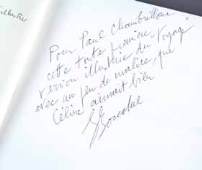 Pour Paul Chambrillon
cette toute première
version illustrée du "Voyage"
avec un peu de malice que
Céline aimait bien